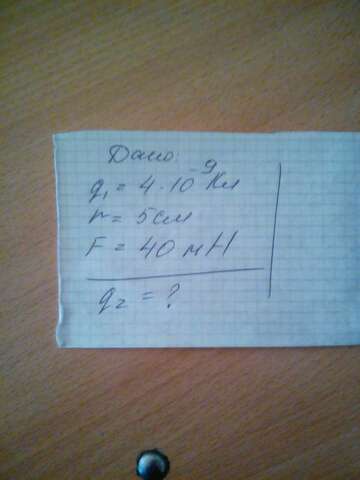 Дано:
q₁ = 4 · 10⁻⁹ Кл
r = 5 см
F = 40 мН
q₂ = ?